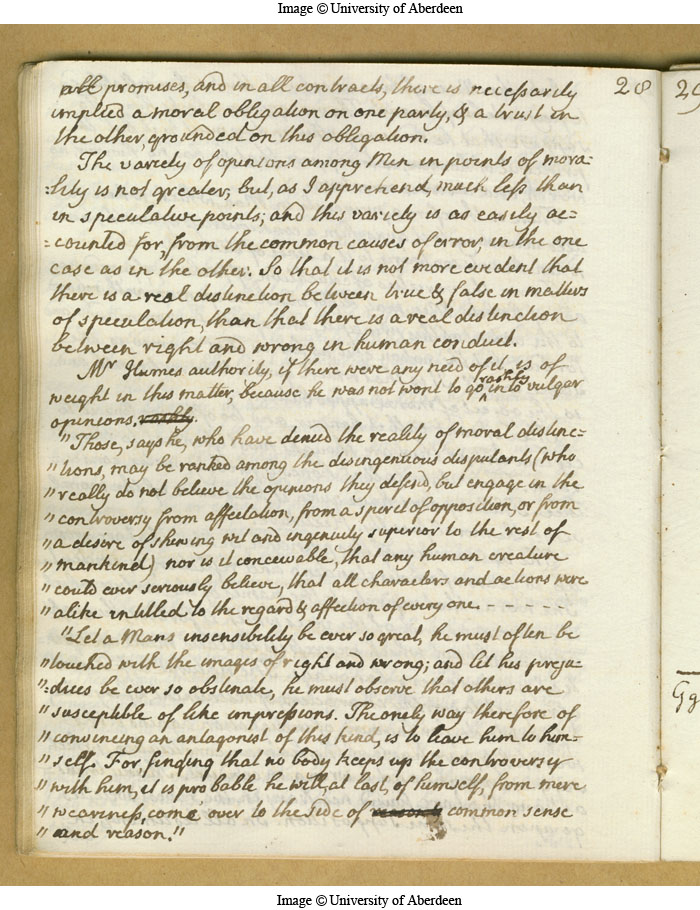 Image © University of Aberdeen
28
29
all promises, and in all contracts, there is necessarily
implied a moral obligation on one party, & a trust in
the other, grounded on this obligation.
The variety of opinions among Men in points of mora=
=lity is not greater, but, as I apprehend, much less than
in speculative points; and this variety is as easily ac=
=counted for, from the common causes of error, in the one
case as in the other. So that it is not more evident that
there is a real distinction between true & false in matters
of speculation, than that there is a real distinction
between right and wrong in human conduct.
Mr Humes authority, if there were any need of it, is of
weight in this matter, because he was not wont to go rashly into vulgar
opinions. rashly.
"Those, says he, who have denied the reality of moral distinc=
"tions, may be ranked among the disingenuous disputants (who
"really do not believe the opinions they defend, but engage in the
"controversy from affectation, from a spirit of opposition, or from
"a desire of shewing wit and ingenuity superior to the rest of
"mankind) nor is it conceivable, that any human creature
"could ever seriously believe, that all characters and actions were
"alike intitled to the regard & affection of every one - - - - - -
"Let a Mans insensibility be ever so great, he must often be
"touched with the images of right and wrong; and let his preju=
"=dices be ever so obstinate, he must observe that others are
"susceptible of like impressions. The onely way therefore of
"convincing an antagonist of this kind, is to leave him to him=
"self. For, finding that no body keeps up the controversy
"with him, it is probable he will, at last, of himself, from mere
"weariness, come over to the side of common sense
"and reason."
Gg
Image © University of Aberdeen